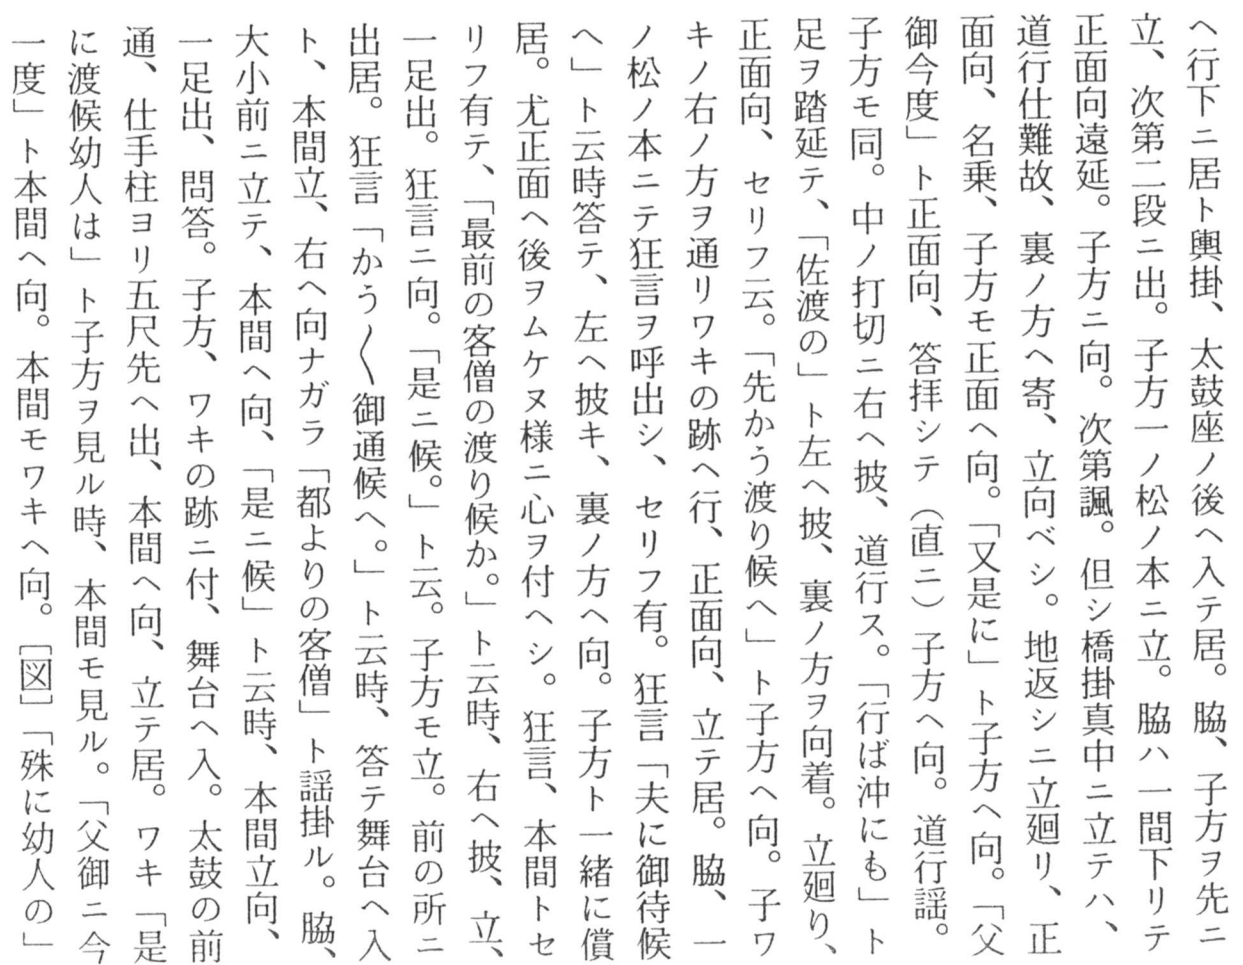 へ行下ニ居ト輿掛、太鼓座ノ後ヘ入テ居。脇、子方ヲ先ニ
立、次第二段ニ出。子方一ノ松ノ本ニ立。脇ハ一間下リテ
正面向遠延。子方ニ向。次第諷。但シ橋掛真中ニ立テハ、
道行仕難故、裏ノ方ヘ寄、立向ベシ。地返シニ立廻リ、正
面向、名乗、子方モ正面ヘ向。「又是に」ト子方ヘ向。「父
御今度」ト正面向、答拝シテ（直ニ）子方ヘ向。道行謡。
子方モ同。中ノ打切ニ右ヘ披、道行ス。「行ば沖にも」ト
足ヲ踏延テ、「佐渡の」ト左ヘ披、裏ノ方ヲ向着。立廻り、
正面向、セリフ云。「先かう渡り候へ」ト子方ヘ向。子ワ
キノ右ノ方ヲ通リワキの跡ヘ行、正面向、立テ居。脇、一
ノ松ノ本ニテ狂言ヲ呼出シ、セリフ有。狂言「夫に御待候
へ」ト云時答テ、左ヘ披キ、裏ノ方ヘ向。子方ト一緒に償
居。尤正面ヘ後ヲムケヌ様ニ心ヲ付ヘシ。狂言、本間トセ
リフ有テ、「最前の客僧の渡り候か。」ト云時、右ヘ披、立、
一足出。狂言ニ向。「是ニ候。」ト云。子方モ立。前の所ニ
出居。狂言「かう〳〵御通候へ。」ト云時、答テ舞台ヘ入
ト、本間立、右ヘ向ナガラ「都よりの客僧」ト謡掛ル。脇、
大小前ニ立テ、本間ヘ向、「是ニ候」ト云時、本間立向、
一足出、問答。子方、ワキの跡ニ付、舞台ヘ入。太鼓の前
通、仕手柱ヨリ五尺先ヘ出、本間ヘ向、立テ居。ワキ「是
に渡候幼人は」ト子方ヲ見ル時、本間モ見ル。「父御ニ今
一度」ト本間ヘ向。本間モワキヘ向。［図］「殊に幼人の」